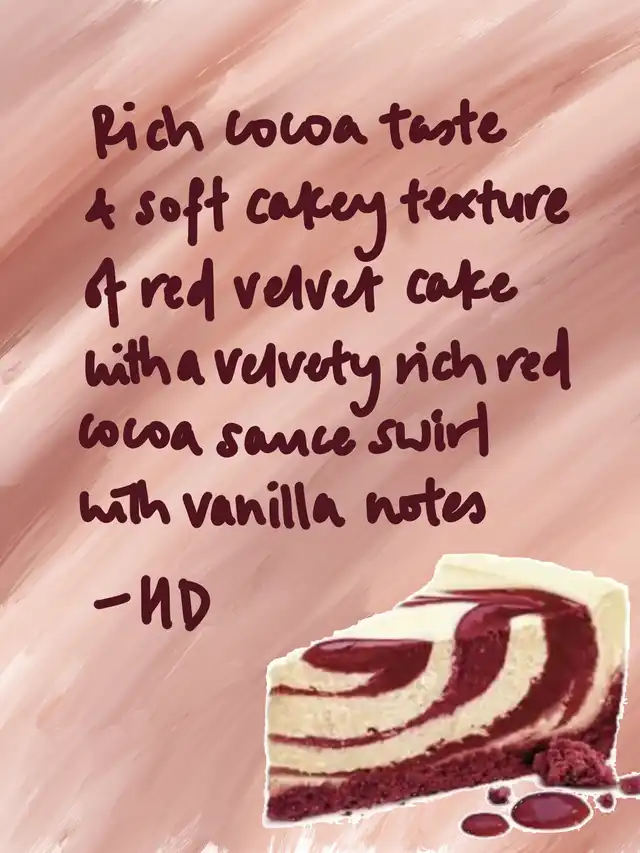 Rich cocoa taste
& soft cakey texture
of red velvet cake
with a velvety rich red
cocoa sauce swirl
with vanilla notes
-HD